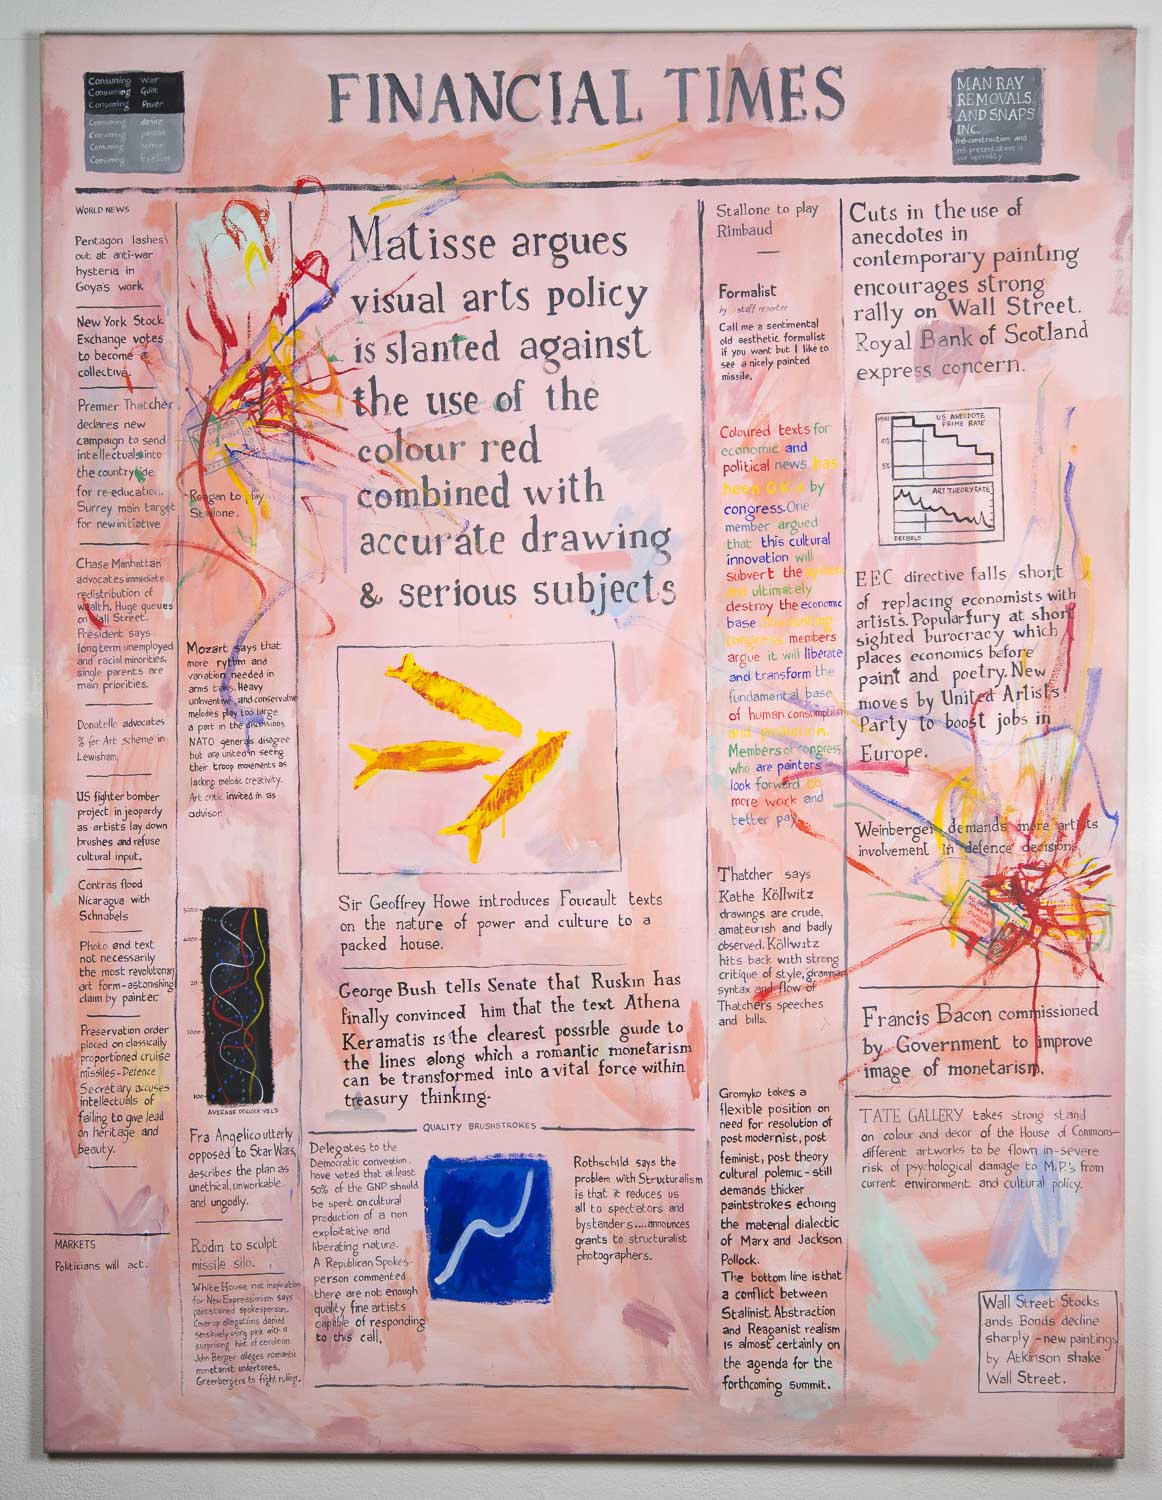 Consuming War
Consuming Guilt
Consuming Power
Consuming desire
Consuming passion
Consuming
Consuming freedom
FINANCIAL TIMES
MAN RAY
REMOVALS
AND SNAPS
INC.
(re)-construction and
(re)-presentation is
our speciality
WORLD NEWS
Pentagon lashes
out at anti-war
hysteria in
Goya's work
New York Stock
Exchange votes
to become a
collective.
Premier Thatcher
declares new
campaign to send
intellectuals into
the countryside
for re-education.
Surrey main target
for new initiative
Chase Manhattan
advocates immediate
redistribution of
wealth. Huge queues
on Wall Street.
President says
long term unemployed
and racial minorities,
single parents are
main priorities.
Donatello advocates
% for Art scheme in
Lewisham.
US fighter bomber
project in jeopardy
as artists lay down
brushes and refuse
cultural input.
Contras flood
Nicaragua with
Schnabels
Photo and text
not necessarily
the most revolutionary
art form-astonishing
claim by painter
Preservation order
placed on classically
proportioned cruise
missiles-Defence
Secretary accuses
intellectuals of
failing to give lead
on heritage and
beauty.
MARKETS
Politicians will act.
Reagan to play
Stallone.
Mozart says that
more rythm and
variation needed in
arms talks. Heavy
uninventive and conservative
melodies play too large
a part in the discussions.
NATO generals disagree
but are united in seeing
their troop movements as
lacking melodic creativity.
Art critic invited in as
advisor.
AVERAGE POLLOCK YIELD
Fra Angelico utterly
opposed to Star Wars,
describes the plan as
unethical, unworkable
and ungodly.
Rodin to sculpt
missile silo.
White House not inspiration
for New Expressionism says
paintstained spokesperson.
Cover up allegations denied
sensitively using pink with a
surprising hint of cerulean.
John Berger alleges romantic
monetarist undertones.
Greenbergers to fight ruling.
Matisse argues
visual arts policy
is slanted against
the use of the
colour red
combined with
accurate drawing
& serious subjects
Sir Geoffrey Howe introduces Foucault texts
on the nature of power and culture to a
packed house.
George Bush tells Senate that Ruskin has
finally convinced him that the text Athena
Keramatis is the clearest possible guide to
the lines along which a romantic monetarism
can be transformed into a vital force within
treasury thinking.
QUALITY BRUSHSTROKES
Delegates to the
Democratic convention.
have voted that at least
50% of the GNP should
be spent on cultural
production of a non
exploitative and
liberating nature.
A Republican Spokes-
person commented
there are not enough
quality fine artists
capable of responding
to this call.
Rothschild says the
problem with Structuralism
is that it reduces us
all to spectators and
bystanders....announces
grants to structuralist
photographers.
Stallone to play
Rimbaud
Formalist
by staff reporter
Call me a sentimental
old aesthetic formalist
if you want but I like to
see a nicely painted
missile.
Coloured texts for
economic and
political news has
been OK'd by
congress. One
member argued
that this cultural
innovation will
subvert the system
and ultimately
destroy the economic
base.
congress members
argue it will liberate
and transform the
fundamental base
of human consumption
and production.
Members of congress
who are painters
look forward to
more work and
better pay.
Thatcher says
Kathe Köllwitz
drawings are crude,
amateurish and badly
observed. Köllwitz
hits back with strong
critique of style, grammar
syntax and flow of
Thatchers speeches
and bills.
Gromyko takes a
flexible position on
need for resolution of
post modernist, post
feminist, post theory
cultural polemic - still
demands thicker
paintstrokes echoing
the material dialectic
of Marx and Jackson
Pollock.
The bottom line is that
a conflict between
Stalinist Abstraction
and Reaganist realism
is almost certainly on
the agenda for the
forthcoming summit.
Cuts in the use of
anecdotes in
contemporary painting
encourages strong
rally on Wall Street.
Royal Bank of Scotland
express concern.
US ANECDOTE
PRIME RATE
ART THEORY RATE
DECIBELS
EEC directive falls short
of replacing economists with
artists. Popular fury at short
sighted burocracy which
places economics before
paint and poetry. New
moves by United Artists
Party to boost jobs in
Europe.
Weinberger demands more artists
involvement in defence decisions.
Francis Bacon commissioned
by Government to improve
image of monetarism.
TATE GALLERY takes strong stand
on colour and decor of the House of Commons-
different artworks to be flown in-severe
risk of psychological damage to M.P.'s from
current environment and cultural policy.
Wall Street Stocks
ands Bonds decline
sharply - new paintings
by Atkinson shake
Wall Street.